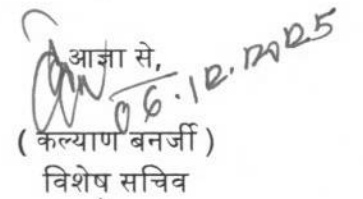 आज्ञा से,
06.12.2025
( कल्याण बनर्जी )
विशेष सचिव